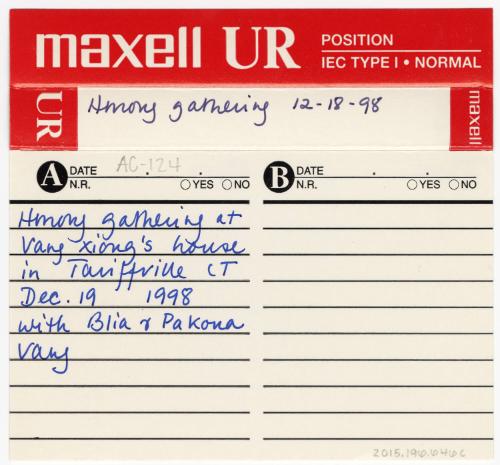 maxell UR POSITION
IEC TYPE I • NORMAL
UR Hmong gathering 12-18-98 maxell
A DATE AC-124
N.R. YES NO
B DATE
N.R. YES NO
Hmong gathering at
Vang Xiong's house
in Tariffville CT
Dec. 19 1998
with Blia & Pakona
Vang
2015.196.646c